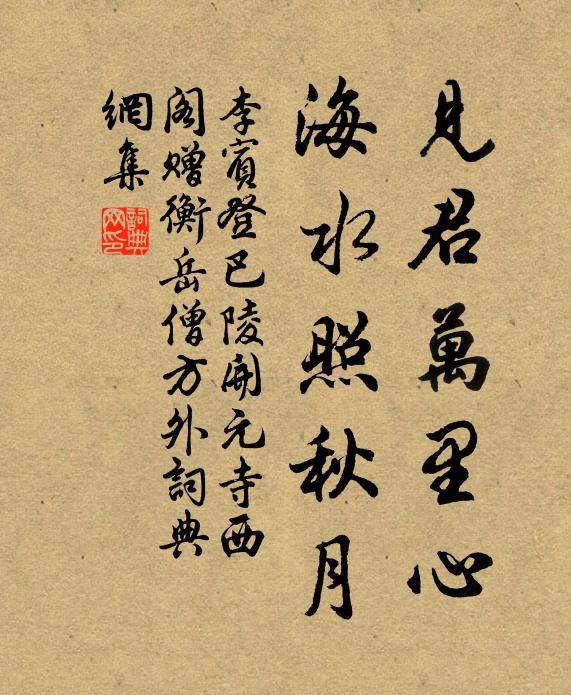 見君萬里心
海水照秋月
李賓登巴陵開元寺西
阁贈衡岳僧方外詞典
網集
詞典
网印